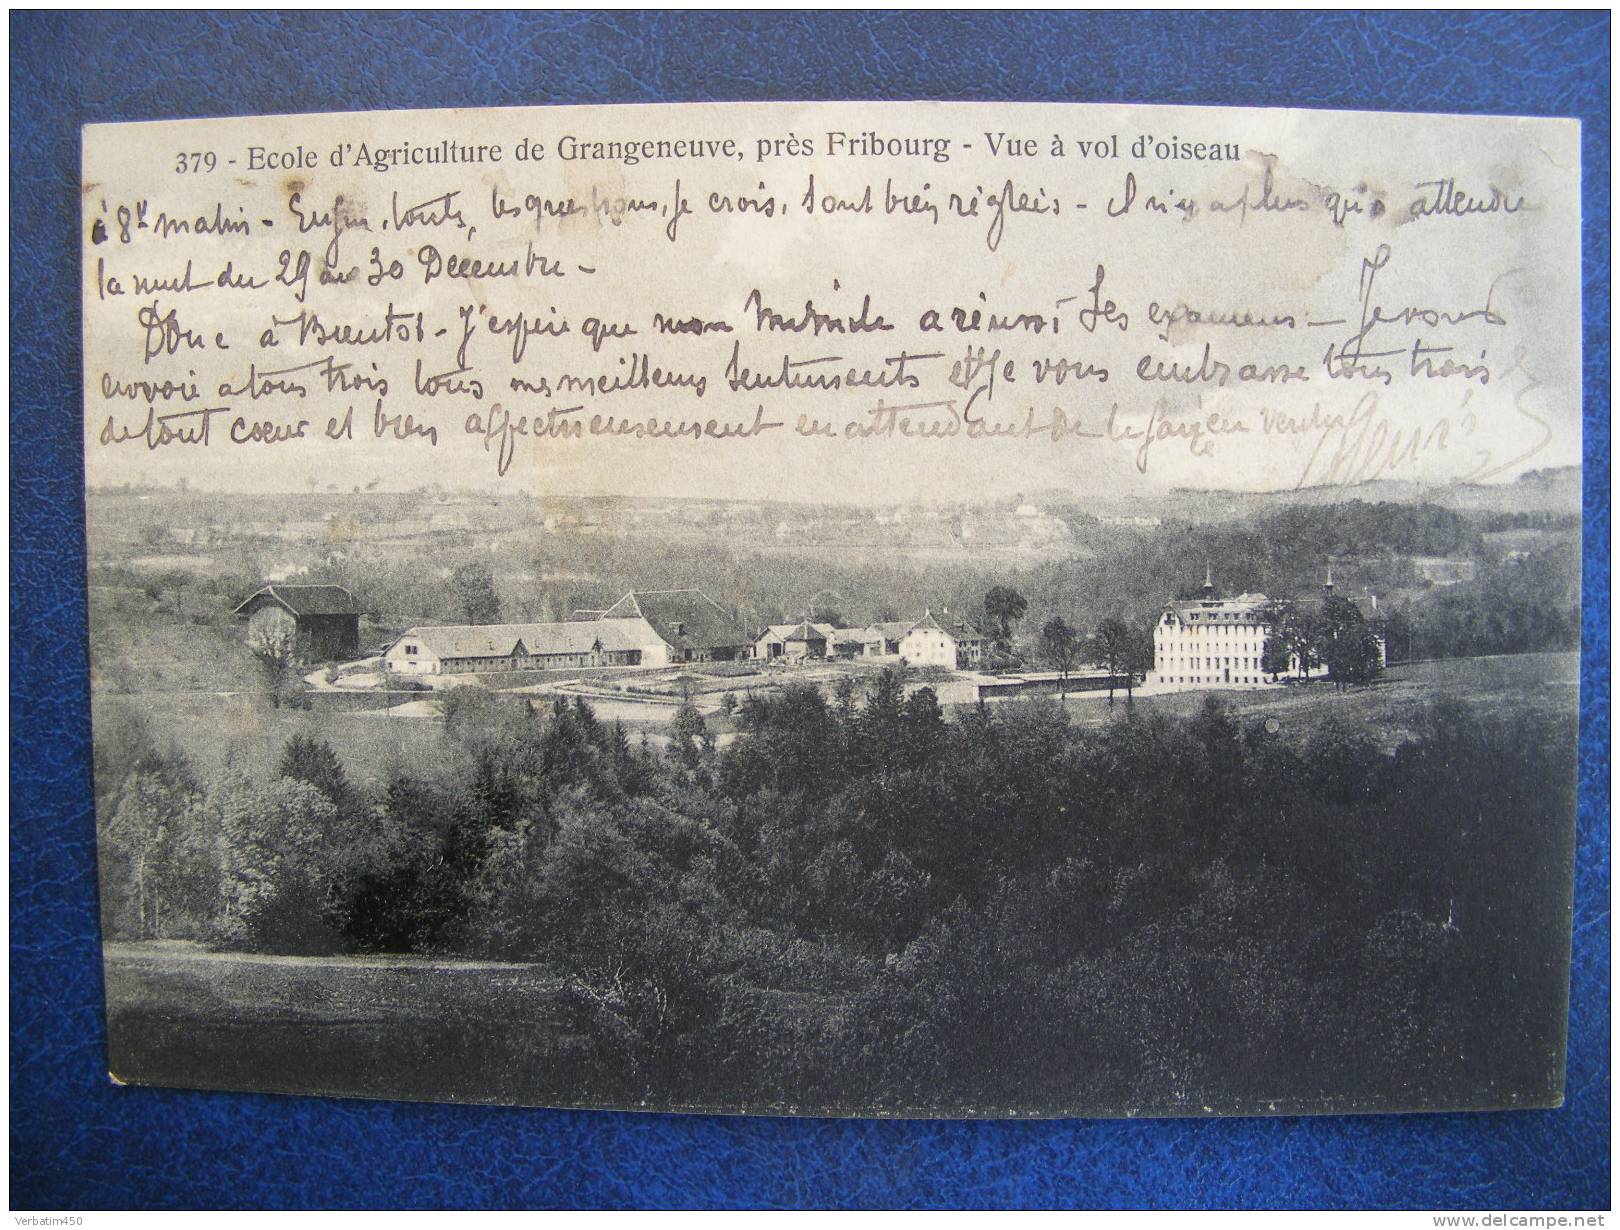 379 - Ecole d'Agriculture de Grangeneuve, près Fribourg - Vue à vol d'oiseau
à 8h matin - Enfin, toutes les questions, je crois, sont bien réglées - il n'y a plus qu'à attendre
la nuit du 29 au 30 Décembre -
Donc à Bientôt - J'espère que mon a réussi ses examens - Je vous
envoie a tous trois tous mes meilleurs sentiments et Je vous embrasse tous trois
de tout cœur et bien affectueusement en attendant de le faire
Henri
Verbatim450
delcampe.net